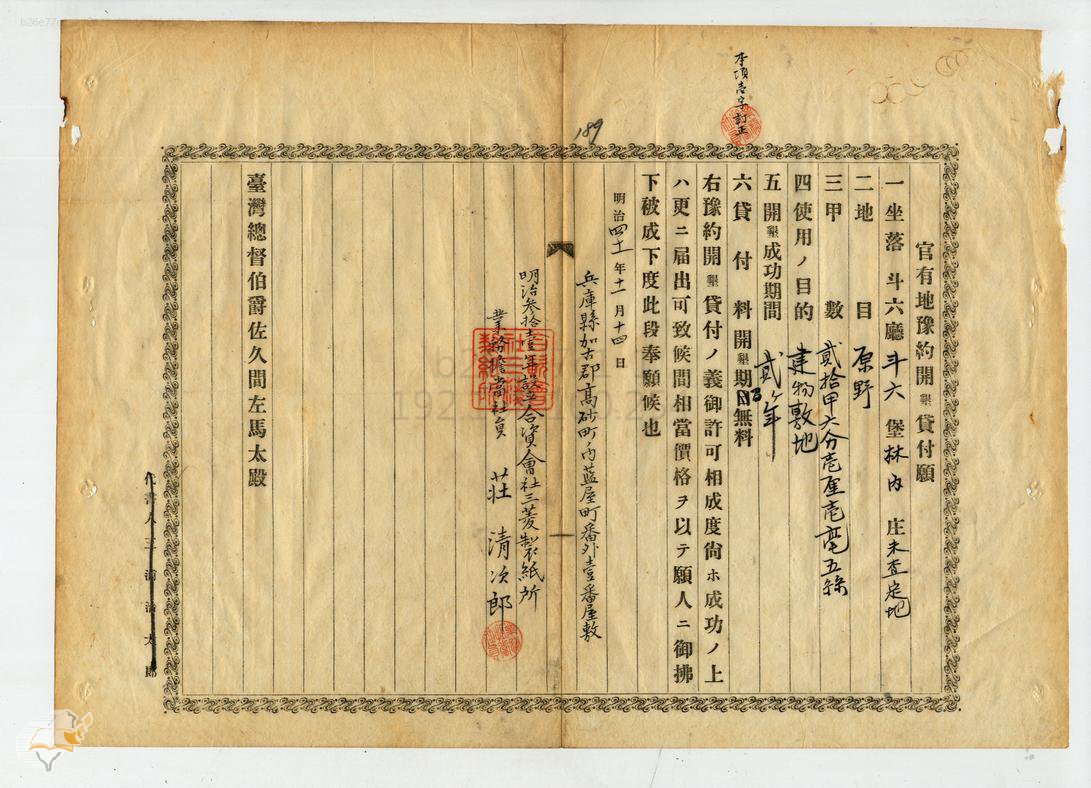 本項壱字訂正
189
官有地豫約開墾貸付願
一坐落 斗六廳斗六堡林内庄未査定地
二地目 原野
三甲數 貳拾甲六分壱厘壱毫五絲
四使用ノ目的 建物敷地
五開墾成功期間 貳ヶ年
六貸付料開墾期間無料
右豫約開墾貸付ノ義御許可相成度尚ホ成功ノ上
ハ更ニ届出可致候間相當價格ヲ以テ願人ニ御拂
下被成下度此段奉願候也
明治四十一年十一月十四日
兵庫縣加古郡高砂町内藍屋町番外壹番屋敷
明治参拾壹年設立合資會社三菱製紙所
業務擔當社員 荘清次郎
臺灣總督伯爵佐久間左馬太殿
代書人三浦治太郎